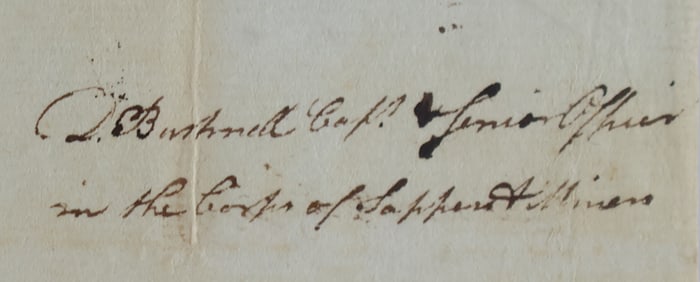 D. Bushnell Capt. & Senior Officer
in the Corps of Sappers & Miners